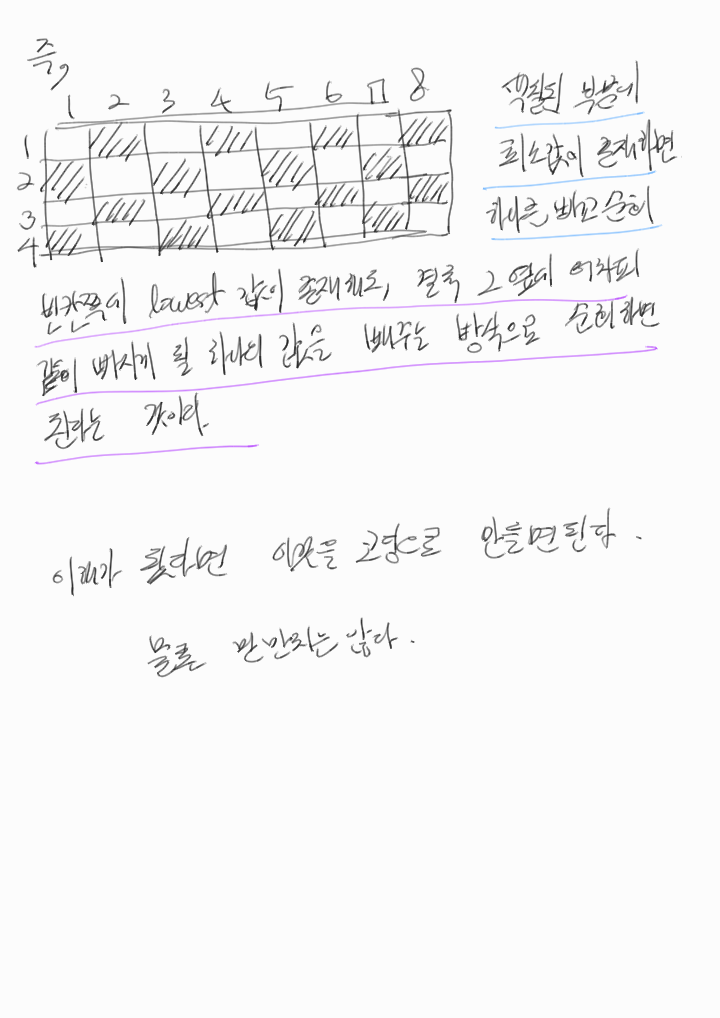 즉,
1 2 3 4 5 6 7 8
1
2
3
4
색칠된 부분에
최소값이 존재하면
하나를 빼고 순회
빈칸쪽에 lowest 값이 존재해도, 결국 그 옆에 어차피
같이 빠지게 될 하나의 값을 빼주는 방식으로 순회하면
된다는 것이다.
이해가 됐다면 이것을 코딩으로 만들면된다.
물론 만만치는 않다.